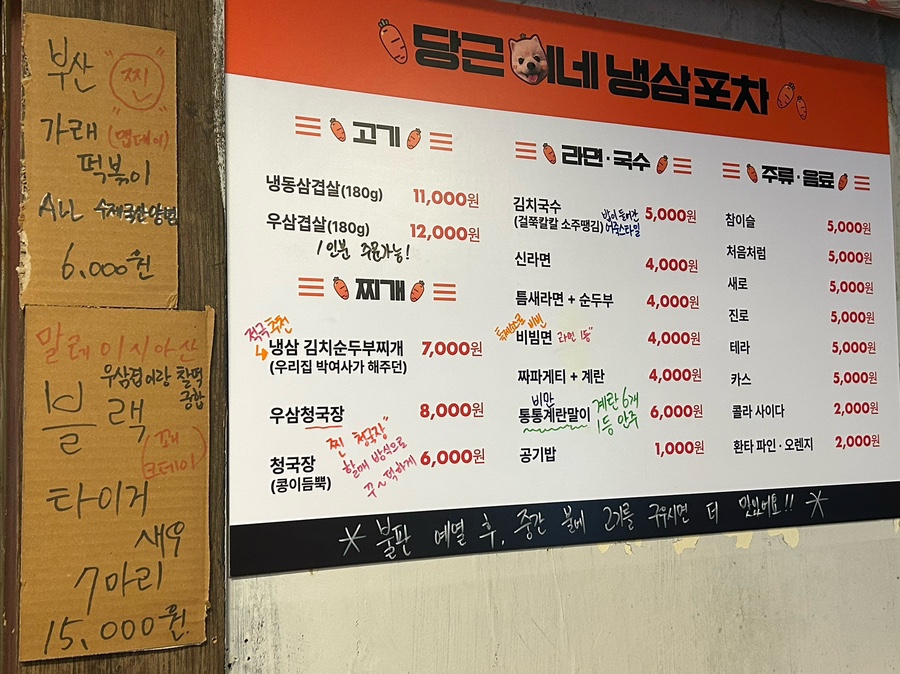 부산 "찐"
가래 (맵데이)
떡볶이
ALL 수제국산양념
6,000원
말레이시아산
우삼겹이랑 찰떡
궁합
블랙
타이거
새우
7마리
15,000원
당근이네 냉삼포차
고기
냉동삼겹살(180g) 11,000원
우삼겹살(180g) 12,000원
1인분 주문가능!
찌개
적극추천
냉삼 김치순두부찌개 7,000원
(우리집 박여사가 해주던)
우삼청국장 8,000원
찐 청국장"
할매 방식으로
꾸~덕하게
청국장 6,000원
(콩이듬뿍)
라면·국수
김치국수 5,000원
(걸쭉칼칼 소주땡김) 밥이 들어간
어죽스타일
신라면 4,000원
틈새라면 + 순두부 4,000원
비빔면 라면 1등" 4,000원
짜파게티 + 계란 4,000원
비만
통통계란말이 6,000원
계란 6개
1등 안주
공기밥 1,000원
주류·음료
참이슬 5,000원
처음처럼 5,000원
새로 5,000원
진로 5,000원
테라 5,000원
카스 5,000원
콜라 사이다 2,000원
환타 파인·오렌지 2,000원
* 불판 예열 후, 중간 불에 고기를 구우시면 더 맛있어요!! *